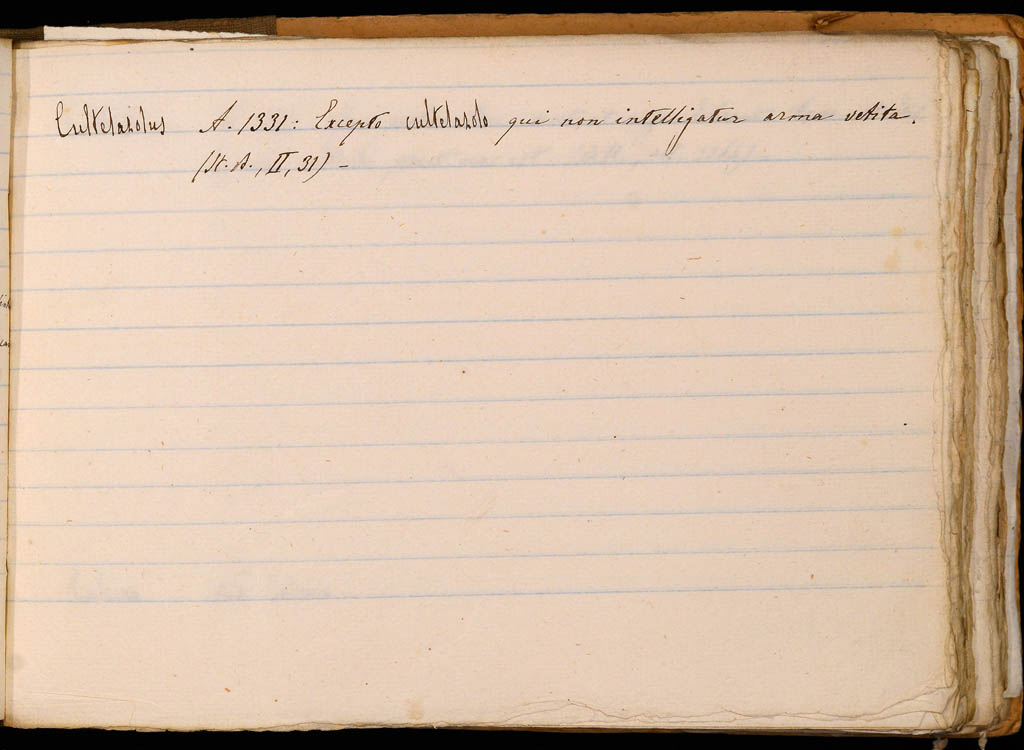 Cultelasolus A. 1331: Excepto cultelasolo qui non intelligatur arma vetita.
(St. A., II, 31) –